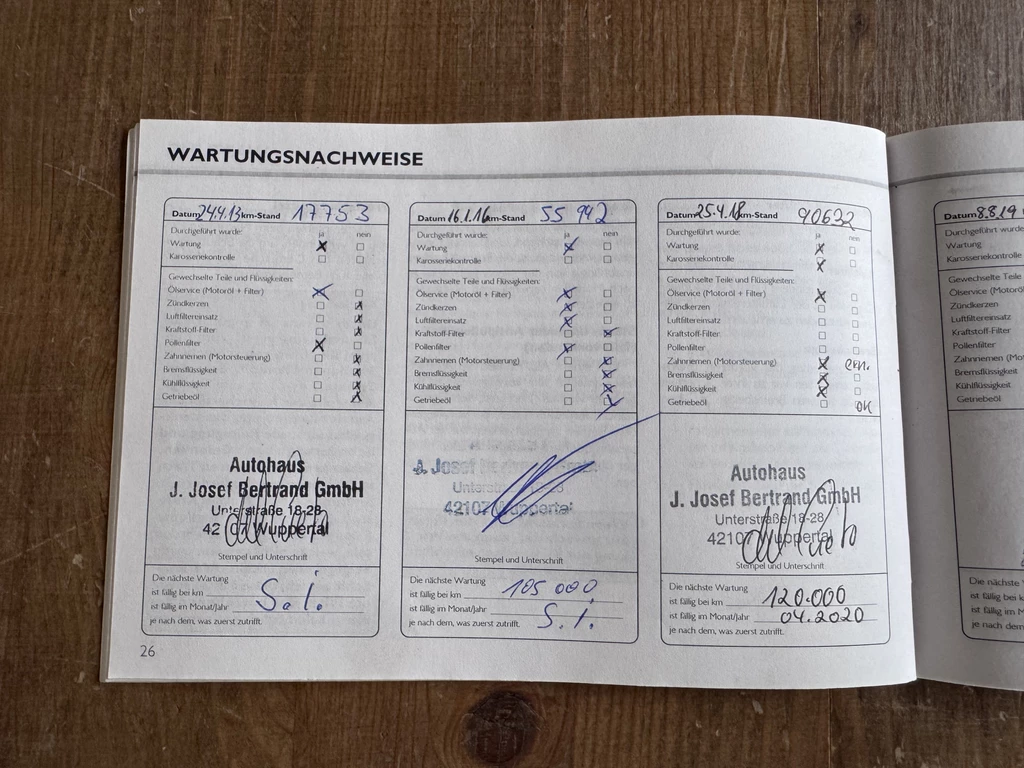 WARTUNGSNACHWEISE
Datum 24.4.13 km-Stand 17753
Durchgeführt wurde: ja nein
Wartung
Karosseriekontrolle
Gewechselte Teile und Flüssigkeiten:
Ölservice (Motoröl + Filter)
Zündkerzen
Luftfiltereinsatz
Kraftstoff-Filter
Pollenfilter
Zahnriemen (Motorsteuerung)
Bremsflüssigkeit
Kühlflüssigkeit
Getriebeöl
Autohaus
J. Josef Bertrand GmbH
Unterstraße 18-28
42 07 Wuppertal
Stempel und Unterschrift
Die nächste Wartung
ist fällig bei km
ist fällig im Monat/Jahr
je nach dem, was zuerst zutrifft.
S.i.
26
Datum 16.1.16 km-Stand 55942
Durchgeführt wurde: ja nein
Wartung
Karosseriekontrolle
Gewechselte Teile und Flüssigkeiten:
Ölservice (Motoröl + Filter)
Zündkerzen
Luftfiltereinsatz
Kraftstoff-Filter
Pollenfilter
Zahnriemen (Motorsteuerung)
Bremsflüssigkeit
Kühlflüssigkeit
Getriebeöl
J. Josef
Unterstr
42107 Wuppertal
Stempel und Unterschrift
Die nächste Wartung
ist fällig bei km 105 000
ist fällig im Monat/Jahr S.i.
je nach dem, was zuerst zutrifft.
Datum 25.4.18 km-Stand 90632
Durchgeführt wurde: ja nein
Wartung
Karosseriekontrolle
Gewechselte Teile und Flüssigkeiten:
Ölservice (Motoröl + Filter)
Zündkerzen
Luftfiltereinsatz
Kraftstoff-Filter
Pollenfilter
Zahnriemen (Motorsteuerung)
Bremsflüssigkeit
Kühlflüssigkeit
Getriebeöl OK
Autohaus
J. Josef Bertrand GmbH
Unterstraße 18-28
42107 Wuppertal
Stempel und Unterschrift
Die nächste Wartung
ist fällig bei km 120.000
ist fällig im Monat/Jahr 04.2020
je nach dem, was zuerst zutrifft.
Datum 8.8.19
Durchgeführt wurde:
Wartung
Karosseriekontrolle
Gewechselte Teile und
Ölservice (Motoröl +
Zündkerzen
Luftfiltereinsatz
Kraftstoff-Filter
Pollenfilter
Zahnriemen (Motors
Bremsflüssigkeit
Kühlflüssigkeit
Getriebeöl
Die nächste
ist fällig bei
ist fällig im M
je nach dem,